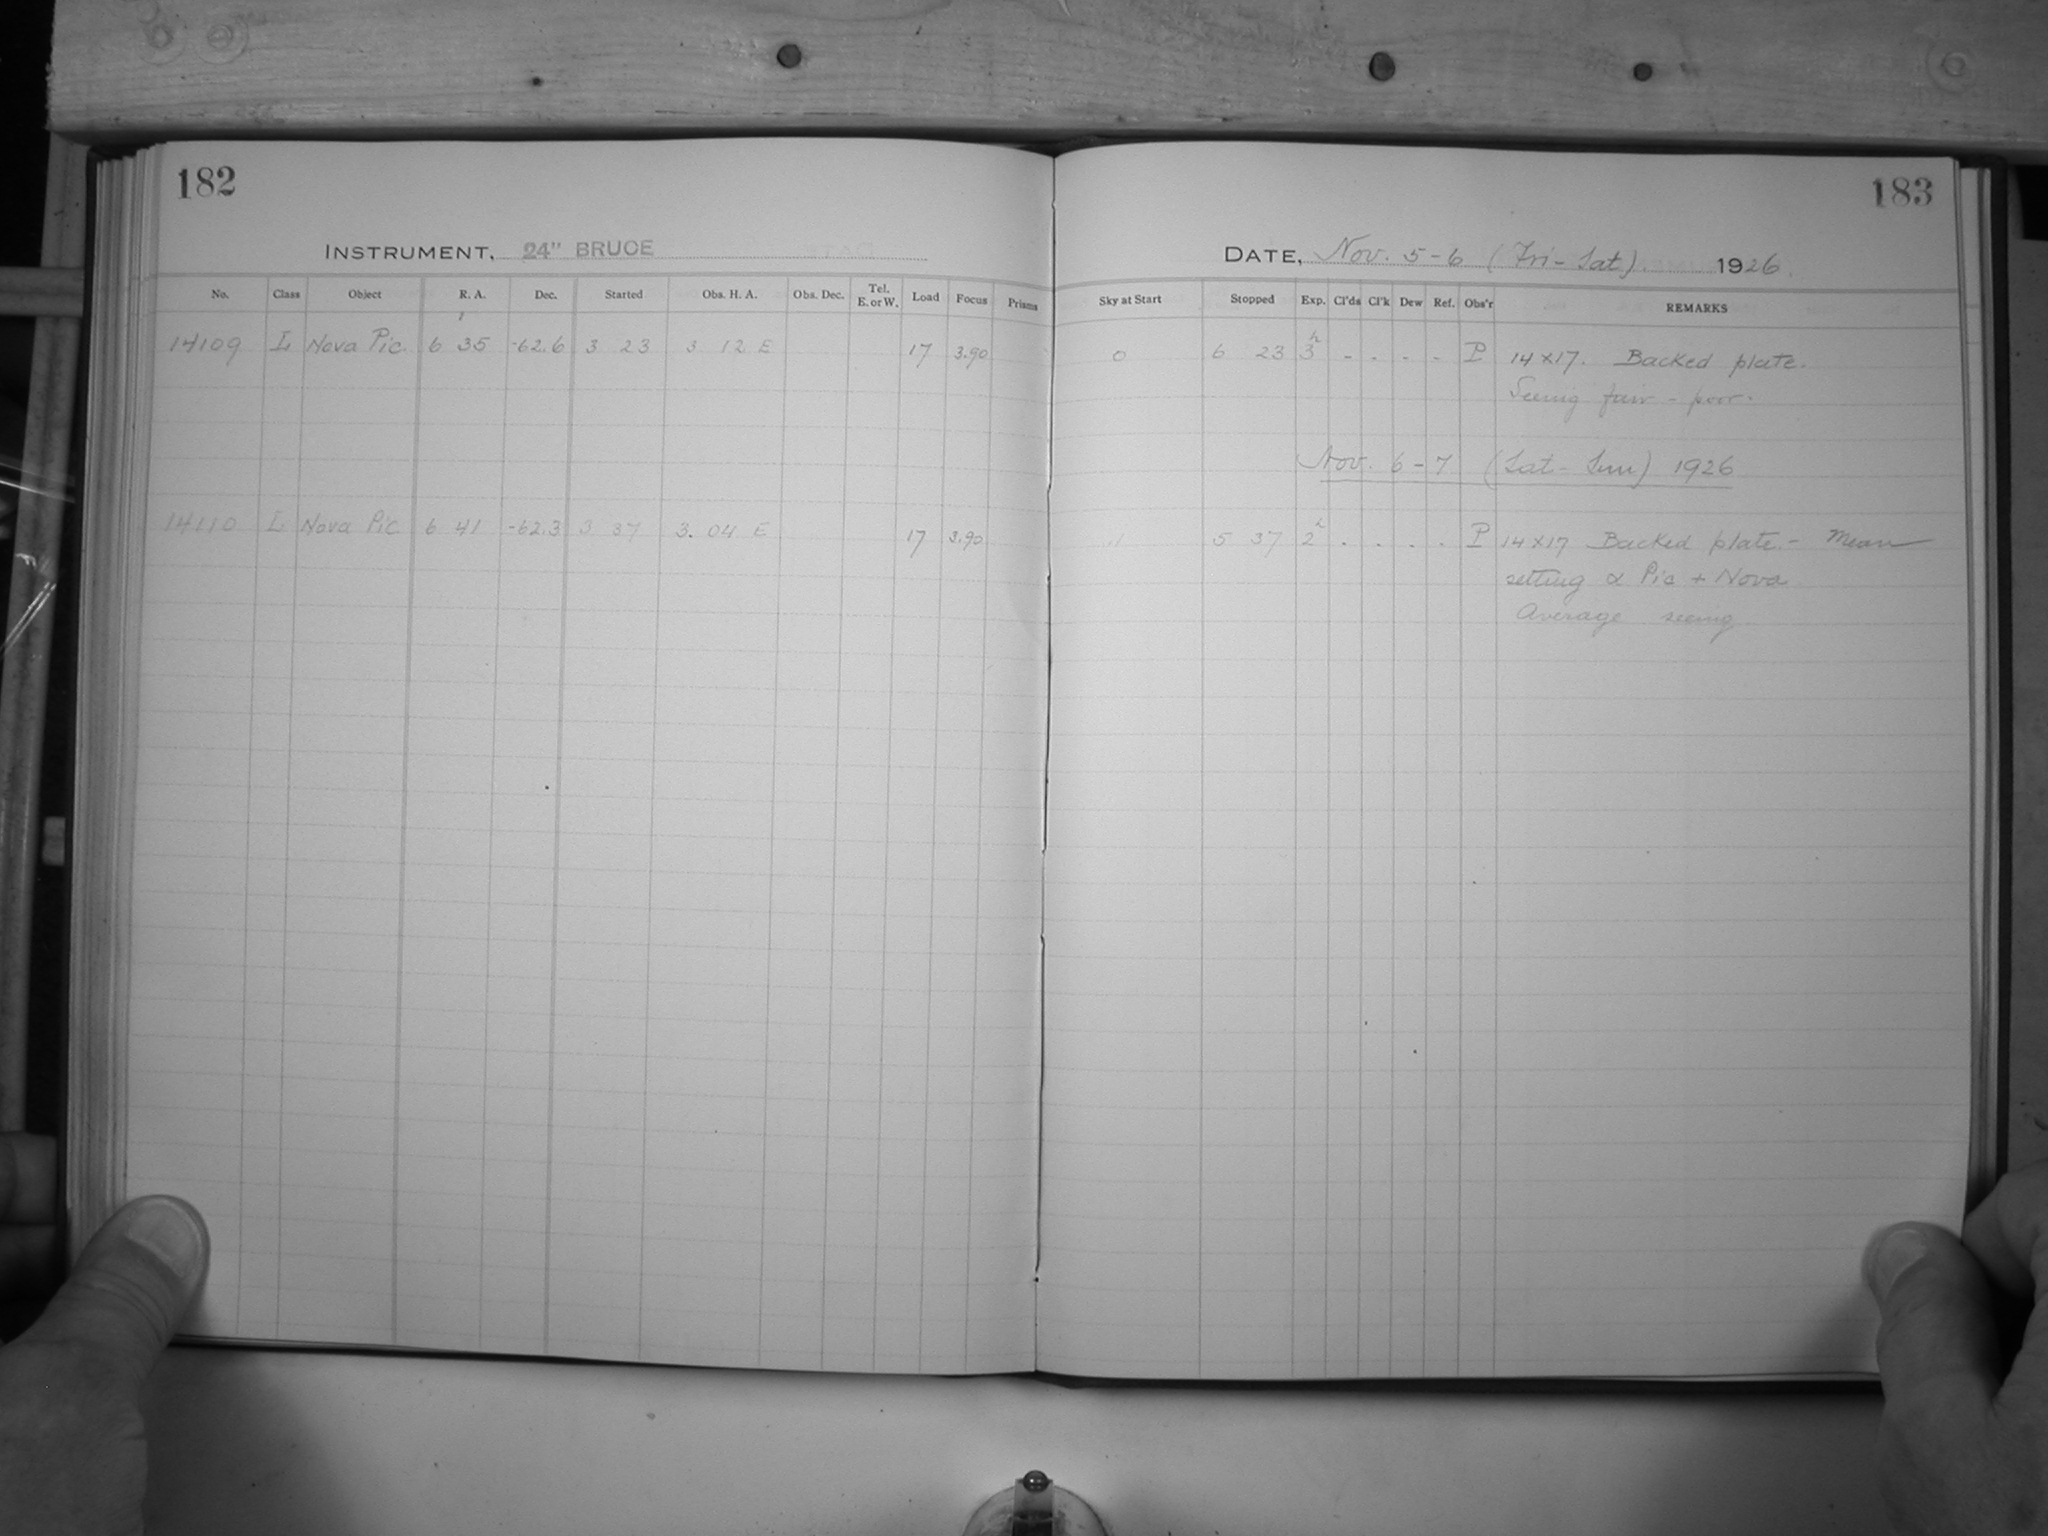 182
INSTRUMENT, 24" BRUCE
No. Class Object R. A. Dec. Started Obs. H. A. Obs. Dec. Tel. E. or W. Load Focus Prisms
14109 L Nova Pic. 6 35 -62.6 3 23 3. 12 E 17 3.90
14110 L Nova Pic 6 41 -62.3 3 37 3. 04 E 17 3.90
183
DATE, Nov. 5-6 (Fri-Sat). 1926.
Sky at Start Stopped Exp. Cl'ds Cl'k Dew Ref. Obs'r REMARKS
0 6 23 3h - . . . - P 14x17. Backed plate.
Seeing fair - poor.
Nov. 6-7 (Sat-Sun) 1926
.1 5 37 2h . . . . P 14x17 Backed plate.- Mean
setting α Pic + Nova
Average seeing